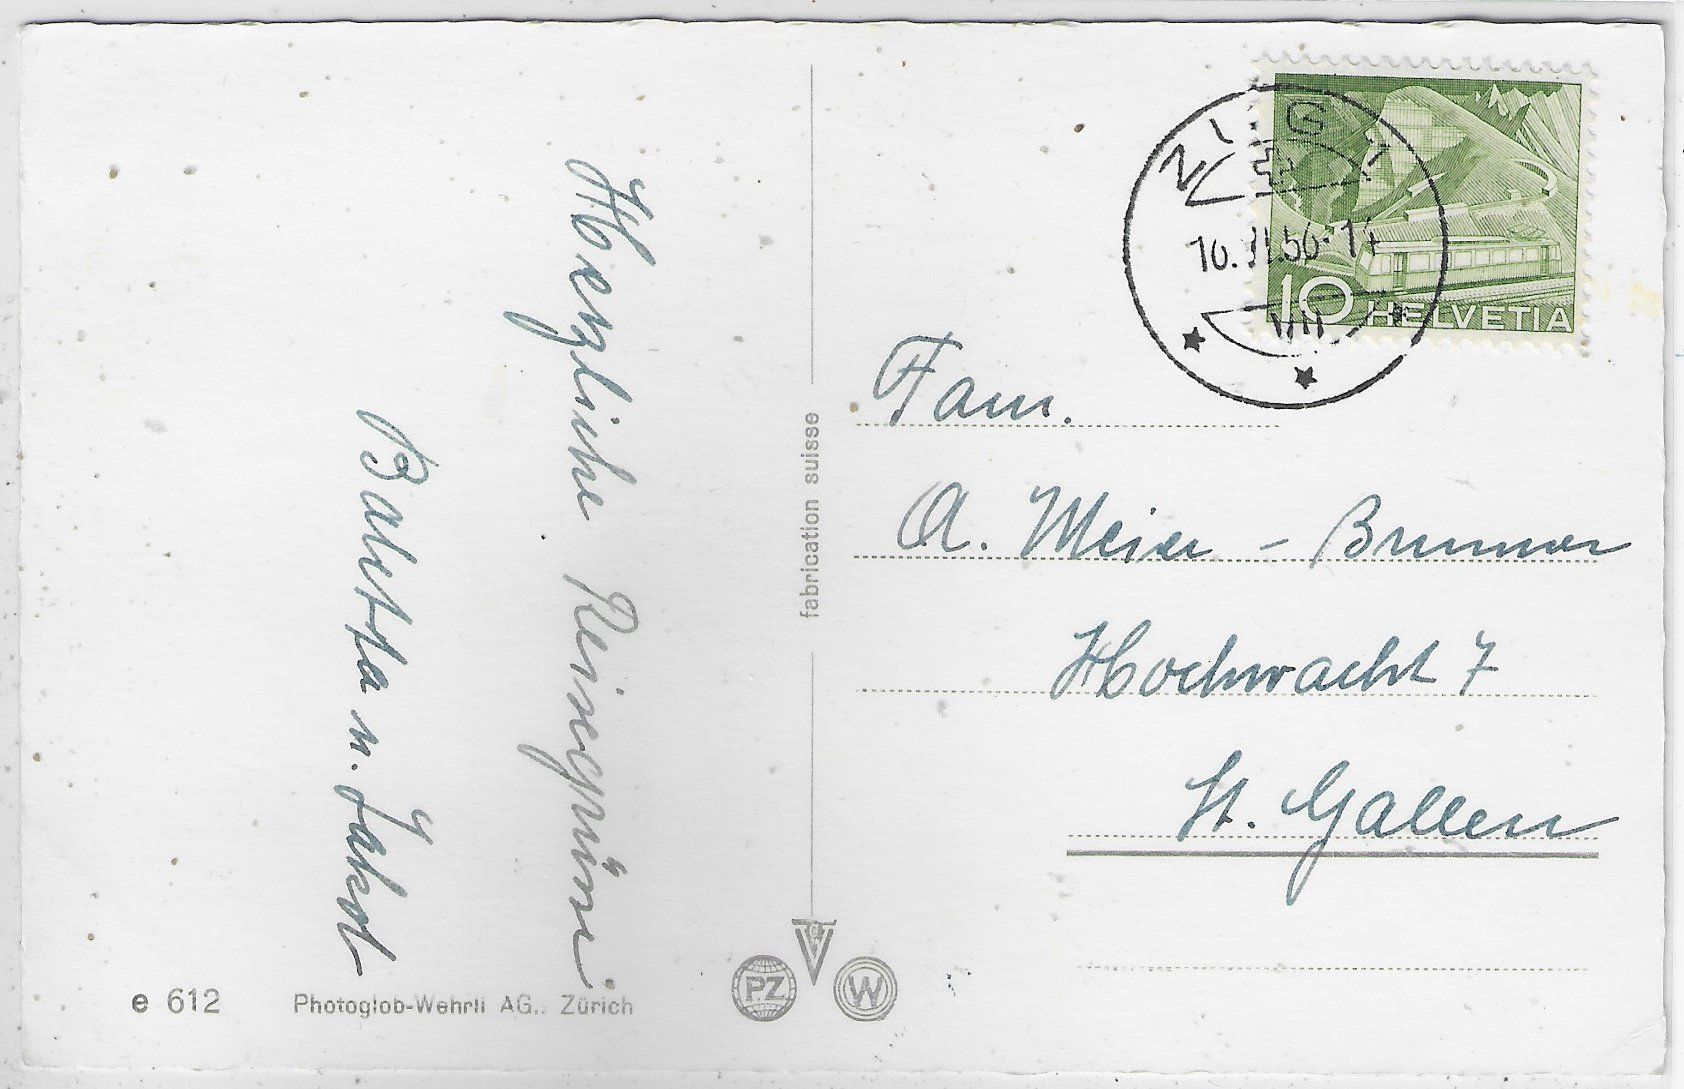 Herzliche Reisegrüsse
Baletta u. Jakob
fabrication suisse
e 612
Photoglob-Wehrli AG., Zürich
PZ
W
10 HELVETIA
VII
Fam.
A. Meier - Brunner
Hochwacht 7
St. Gallen